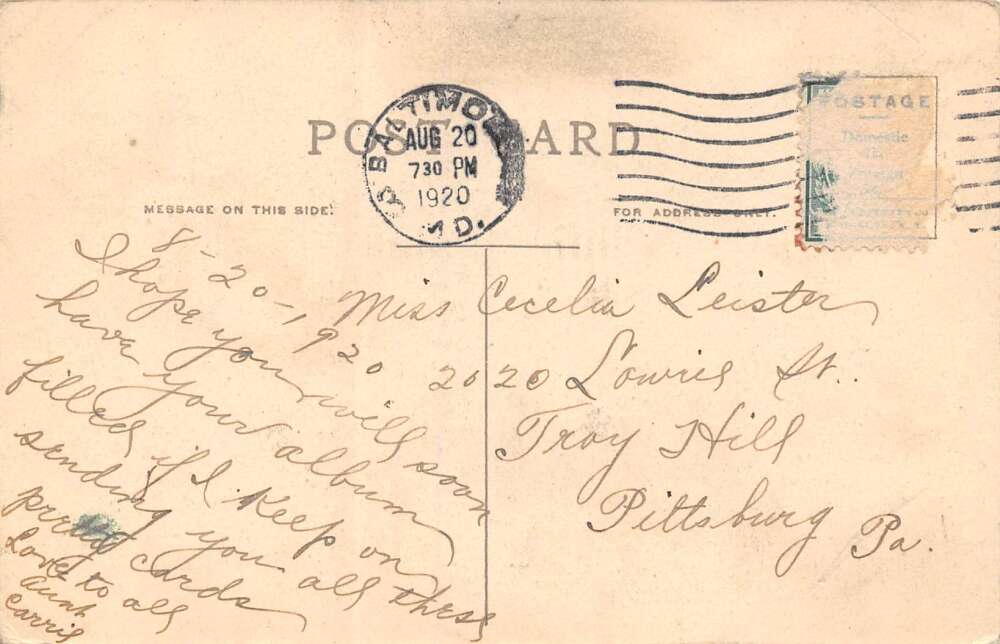 POST CARD
BALTIMO
AUG 20
730 PM
1920
MD.
POSTAGE
Domestic
MESSAGE ON THIS SIDE.
FOR ADDRESS ONLY.
8-20-1920
I hope you will soon
have your album
filled if I keep on
sending you all these
pretty cards
Love to all
Aunt
Carrie
Miss Cecelia Leister
2020 Lowrie St.
Troy Hill
Pittsburg Pa.